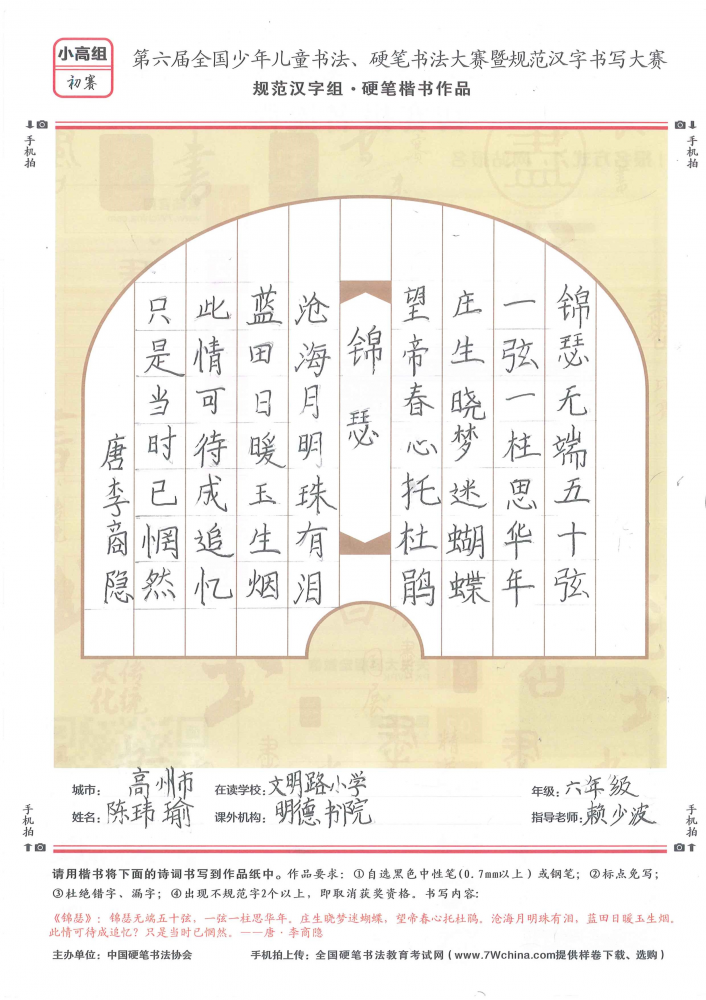 小高组
初赛
第六届全国少年儿童书法、硬笔书法大赛暨规范汉字书写大赛
规范汉字组·硬笔楷书作品
手机拍
手机拍
锦瑟无端五十弦
一弦一柱思华年
庄生晓梦迷蝴蝶
望帝春心托杜鹃
锦瑟
沧海月明珠有泪
蓝田日暖玉生烟
此情可待成追忆
只是当时已惘然
唐李商隐
城市：高州市
在读学校：文明路小学
年级：六年级
姓名：陈玮瑜
课外机构：明德书院
指导老师：赖少波
手机拍
手机拍
请用楷书将下面的诗词书写到作品纸中。作品要求：①自选黑色中性笔(0.7mm以上）或钢笔；②标点免写；
③杜绝错字、漏字；④出现不规范字2个以上，即取消获奖资格。书写内容：
《锦瑟》：锦瑟无端五十弦，一弦一柱思华年。庄生晓梦迷蝴蝶，望帝春心托杜鹃。沧海月明珠有泪，蓝田日暖玉生烟。
此情可待成追忆？只是当时已惘然。——唐·李商隐
主办单位：中国硬笔书法协会
手机拍上传：全国硬笔书法教育考试网（www.7Wchina.com提供样卷下载、选购）